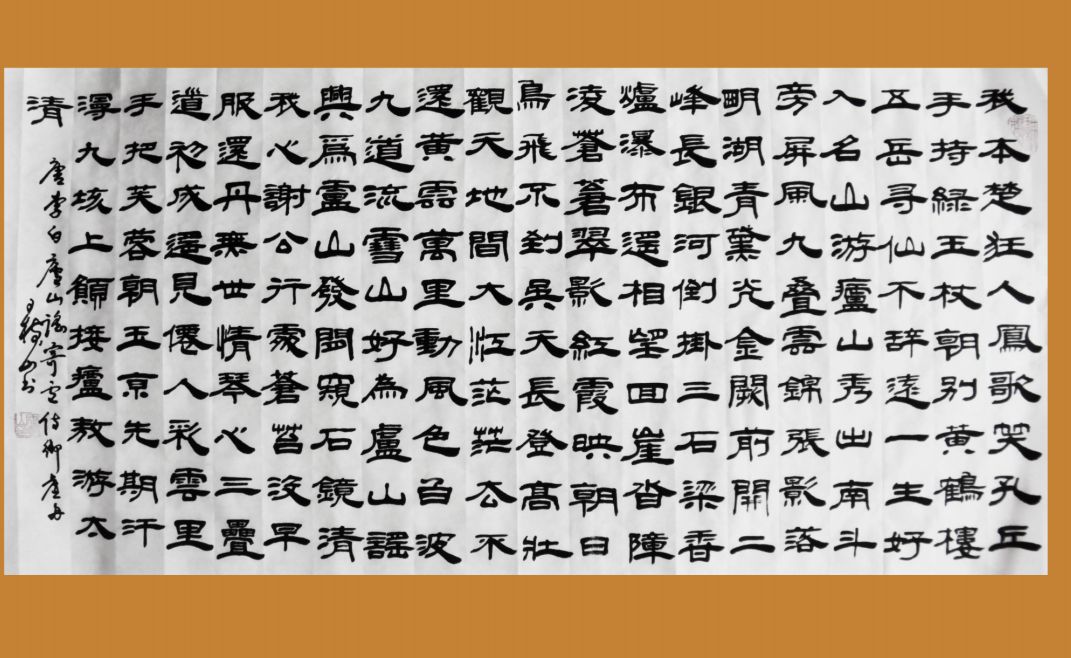 我本楚狂人鳳歌笑孔丘
手持緑玉杖朝别黄鶴樓
五岳寻仙不辞遠一生好
入名山游廬山秀出南斗
旁屏風九叠雲錦張影落
明湖青黛光金闕前開二
峰長銀河倒掛三石梁香
爐瀑布遥相望回崖沓障
凌蒼蒼翠影紅霞映朝日
鳥飛不到吳天長登高壯
觀天地間大江茫茫去不
還黄雲萬里動風色白波
九道流雪山好為廬山謡
興爲靈山發閒窺石鏡清
我心謝公行處蒼苔没早
服還丹無世情琴心三疊
道初成遥見僊人彩雲里
手把芙蓉朝玉京先期汗
漫九垓上願接盧敖游太
清
唐李白廬山謡寄盧侍御虚舟
山书